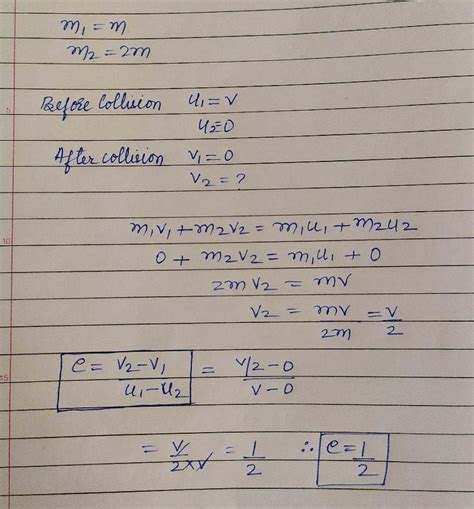 m₁ = m
m₂ = 2m
5
Before Collision u₁ = v
u₂=0
After collision v₁ = 0
v₂ = ?
10
m₁v₁ + m₂v₂ = m₁u₁ + m₂u₂
0 + m₂v₂ = m₁u₁ + 0
2m v₂ = mv
v₂ = mv/2m = v/2
15
e = v₂-v₁/u₁-u₂ = v/2-0/v-0
= v/2×v = 1/2 ∴ e=1/2